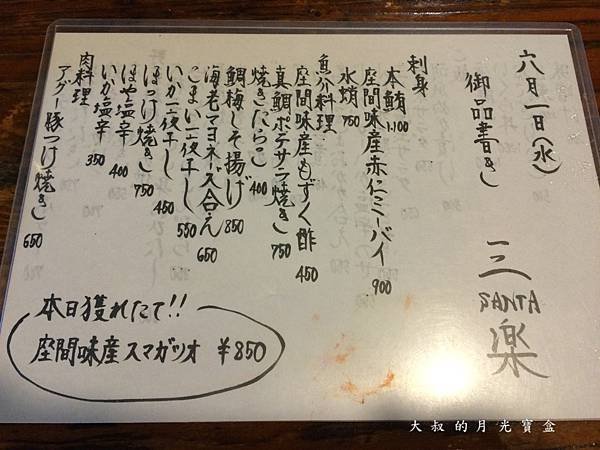 六月一日(水)
御品書き
三
SANTA
楽
刺身
本鮪 1,100
座間味産赤仁ミーバイ 900
水蛸 750
魚介料理
座間味産もずく酢 450
真鯛ポテサラ焼き 750
焼きたらこ 400
鯛梅しそ揚げ 850
海老マヨネーズ合え 650
こまい一夜干し 580
いか一夜干し 450
ほっけ焼き 750
ほや塩辛 400
いか塩辛 350
肉料理
アグー豚つけ焼き 650
本日獲れたて!!
座間味産スマガツオ ¥850
大叔的月光寶盒